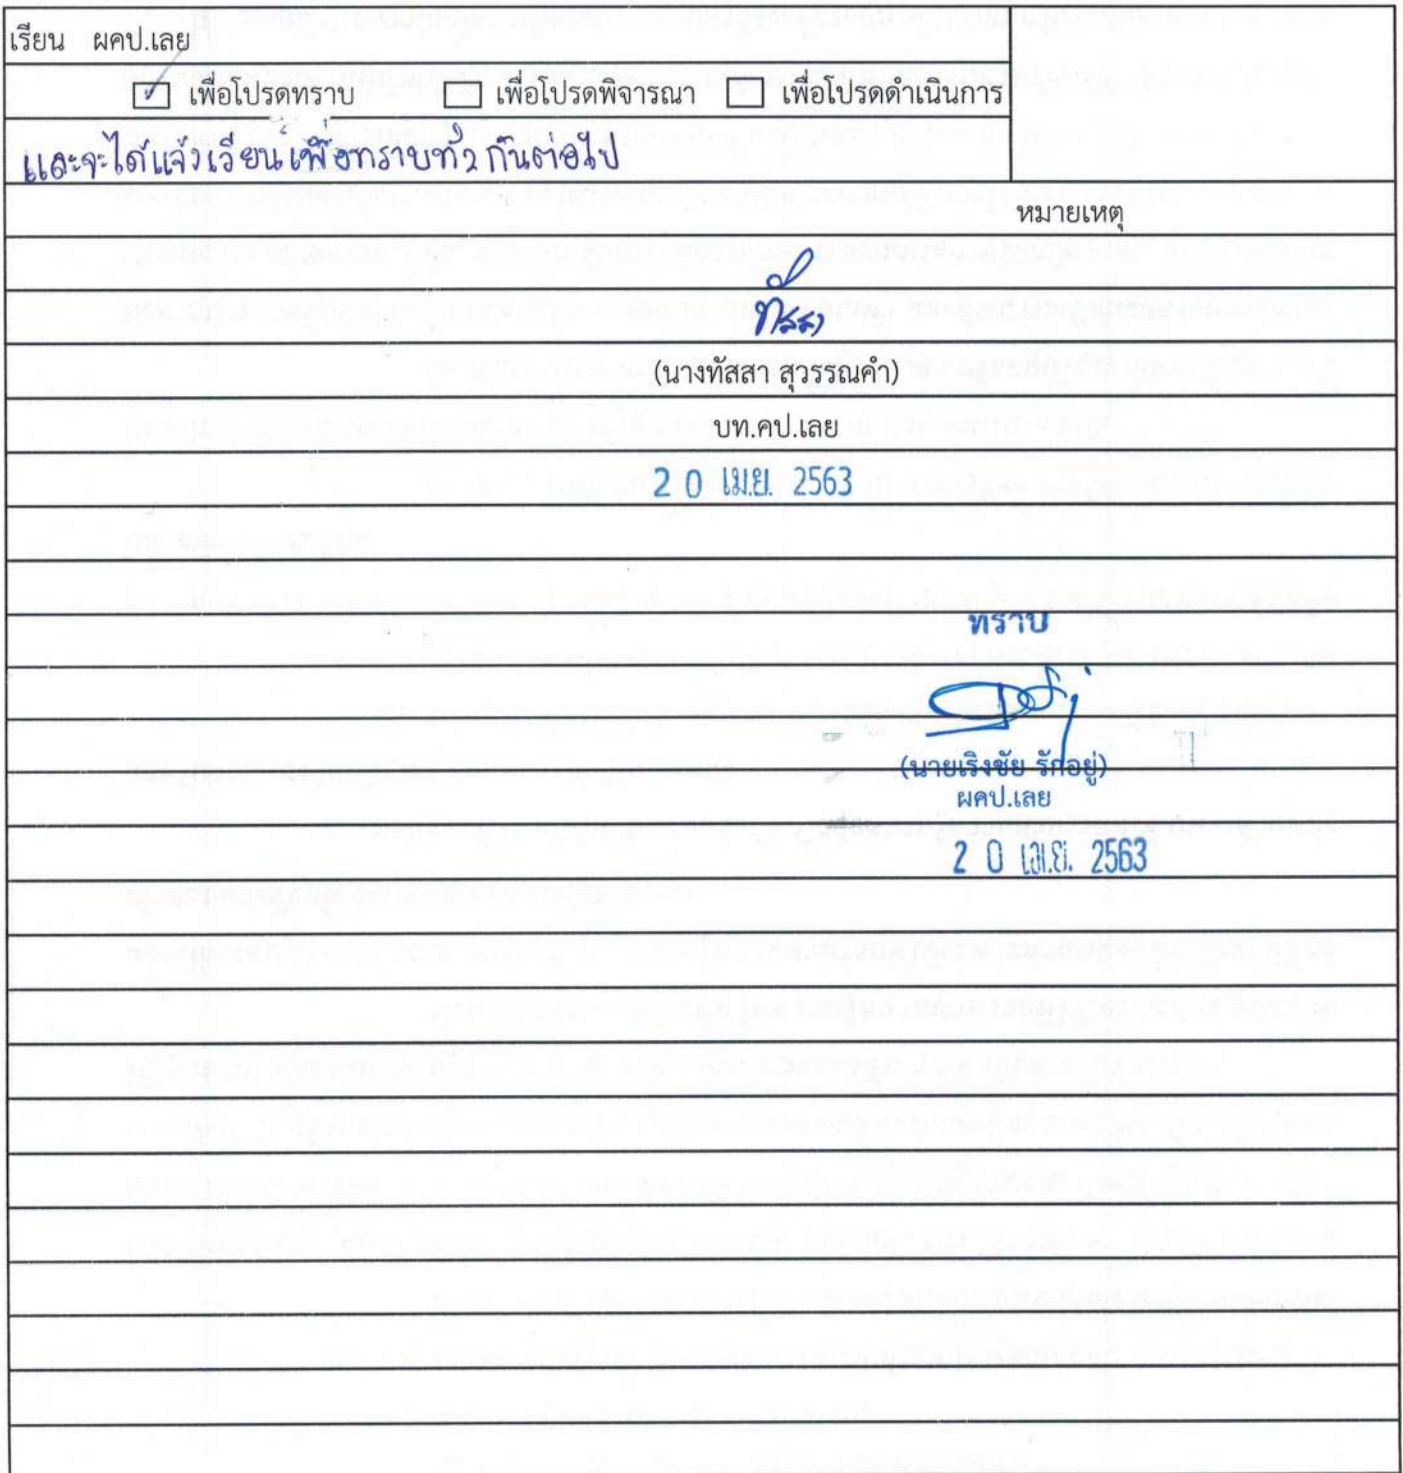 เรียน ผคป.เลย
เพื่อโปรดทราบ เพื่อโปรดพิจารณา เพื่อโปรดดำเนินการ
และจะได้แจ้งเวียนเพื่อทราบทั่วกันต่อไป
หมายเหตุ
ทัสสา
(นางทัสสา สุวรรณคำ)
บท.คป.เลย
20 เม.ย. 2563
ทราบ
(นายเริงชัย รักอยู่)
ผคป.เลย
20 เม.ย. 2563